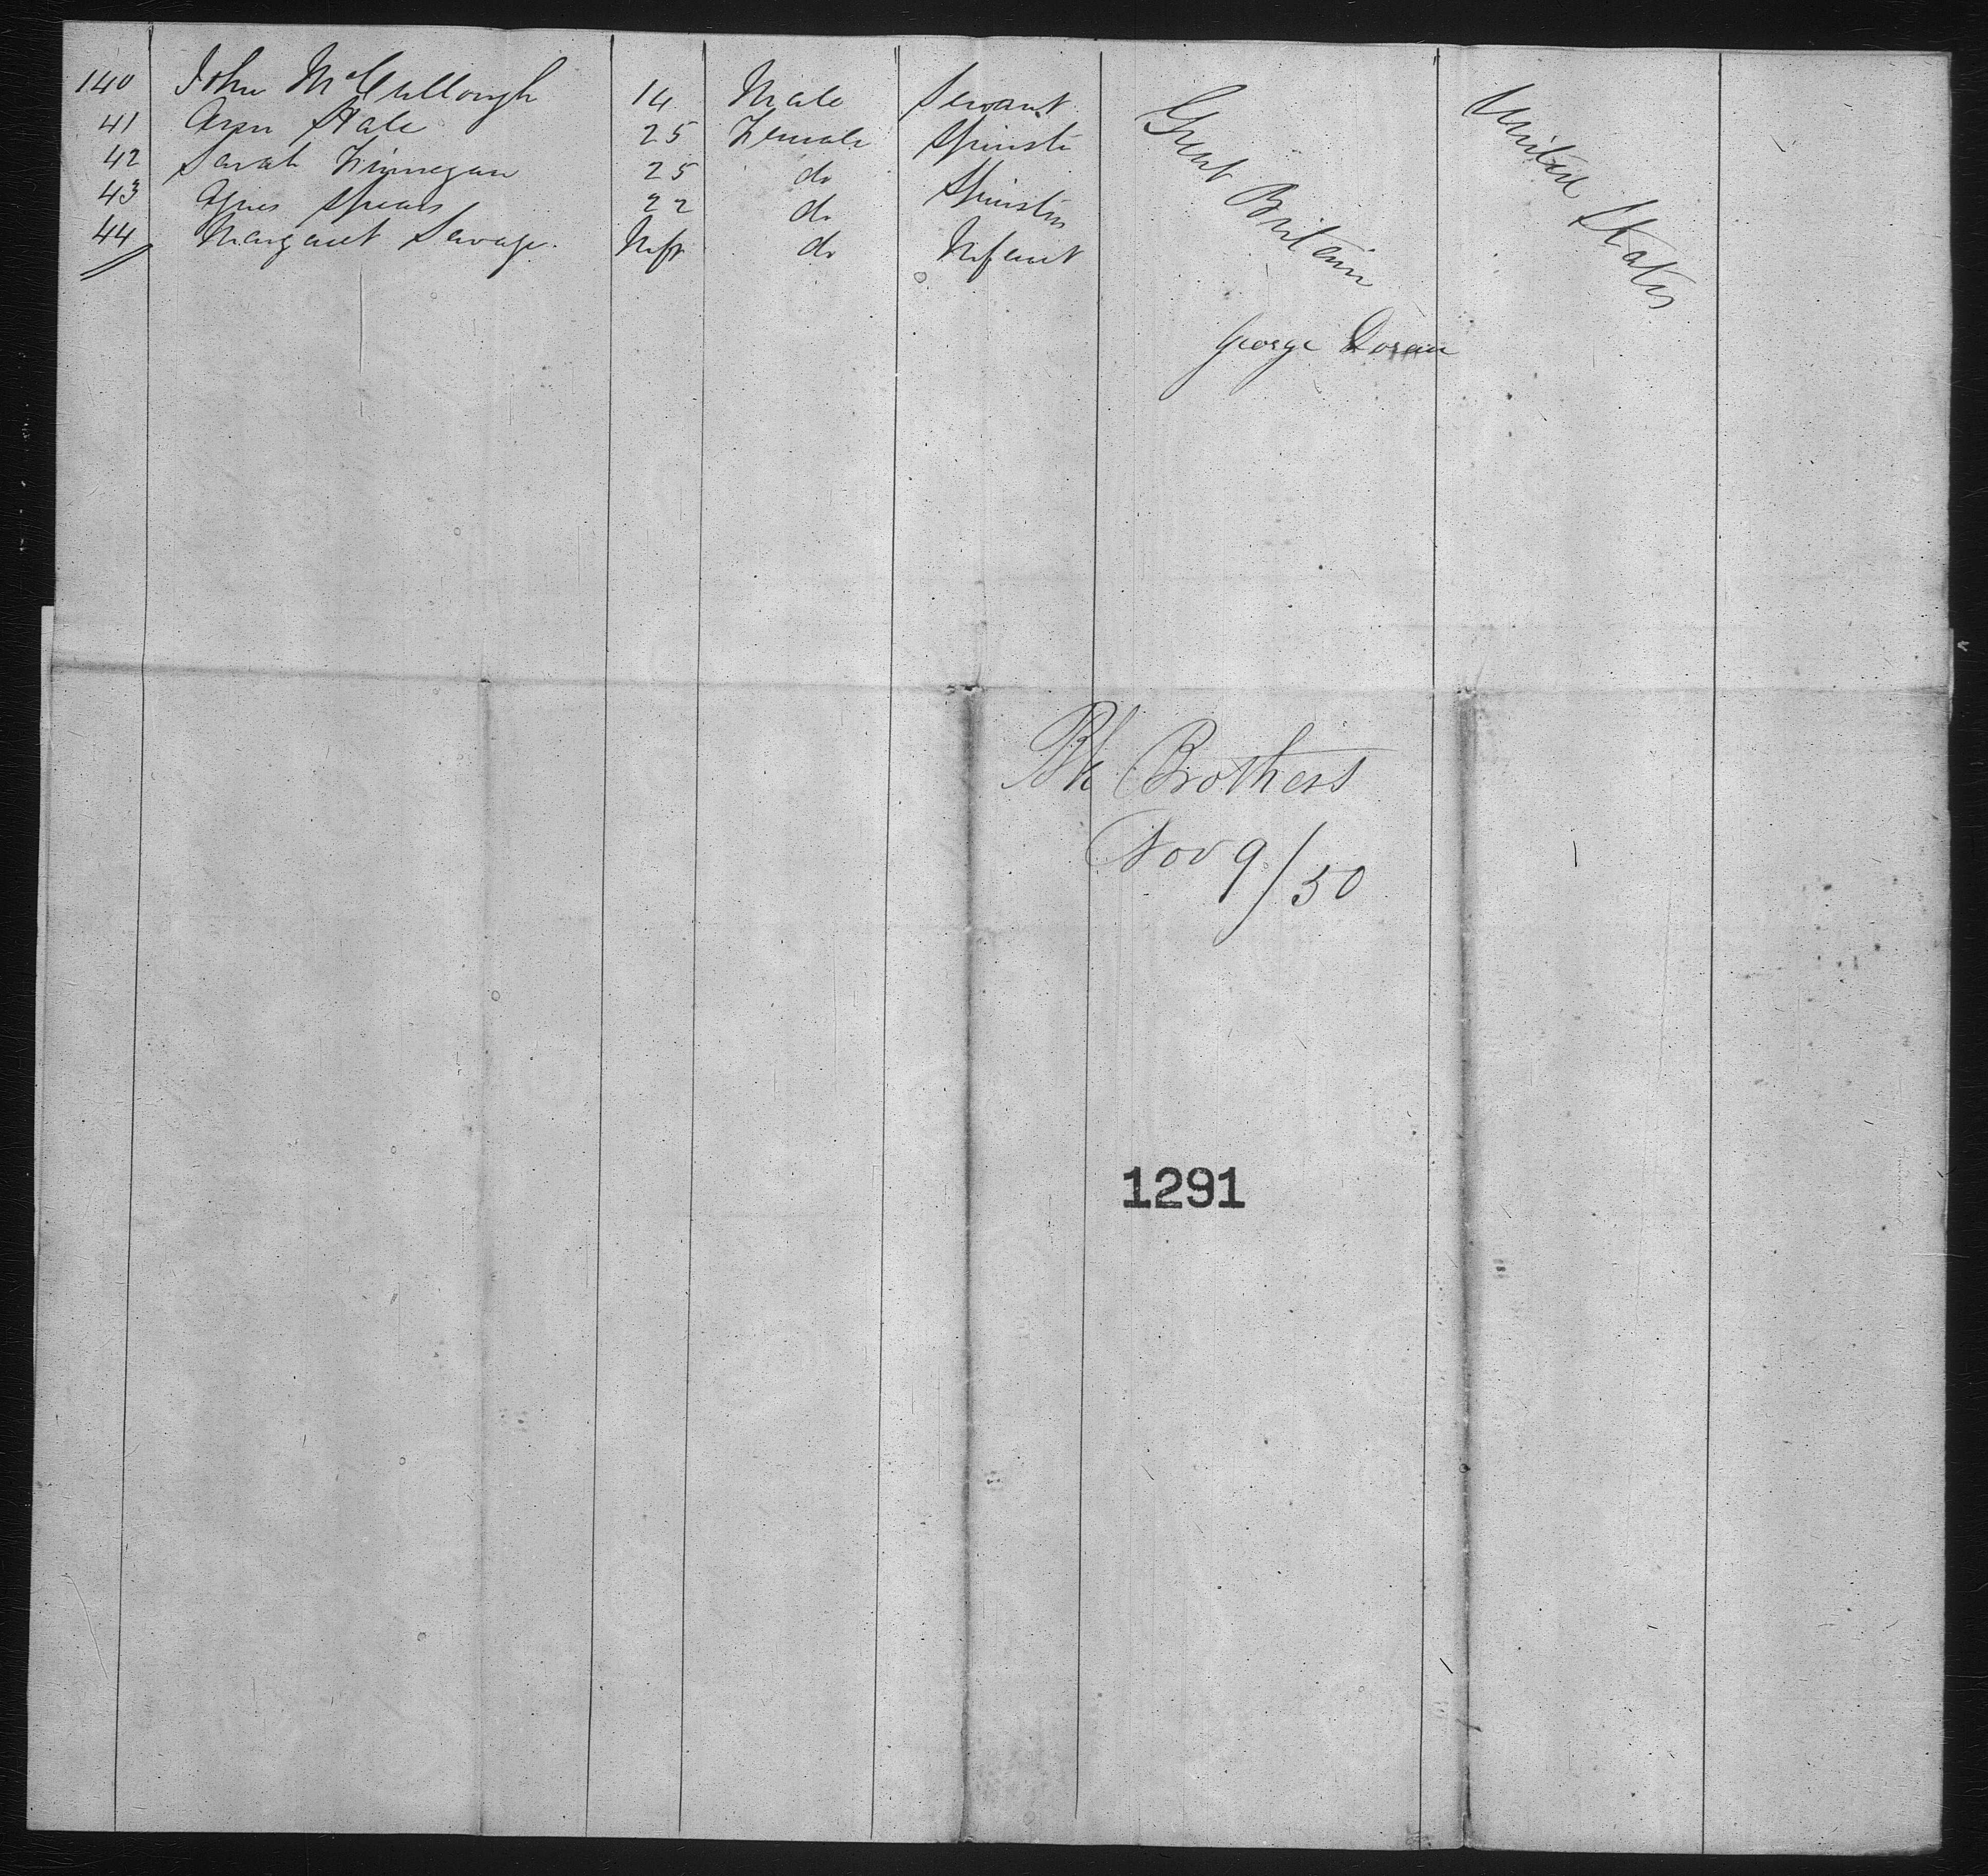 140 John McCullough 14 Male Servant Great Britain United States
41 Ann Hale 25 Female Spinster
42 Sarah Finnegan 25 do Spinster
43 Agnes Spears 22 do
44 Margaret Savage. Inft do Infant
George Doran
Bk Brothers
Nov 9/50
1291